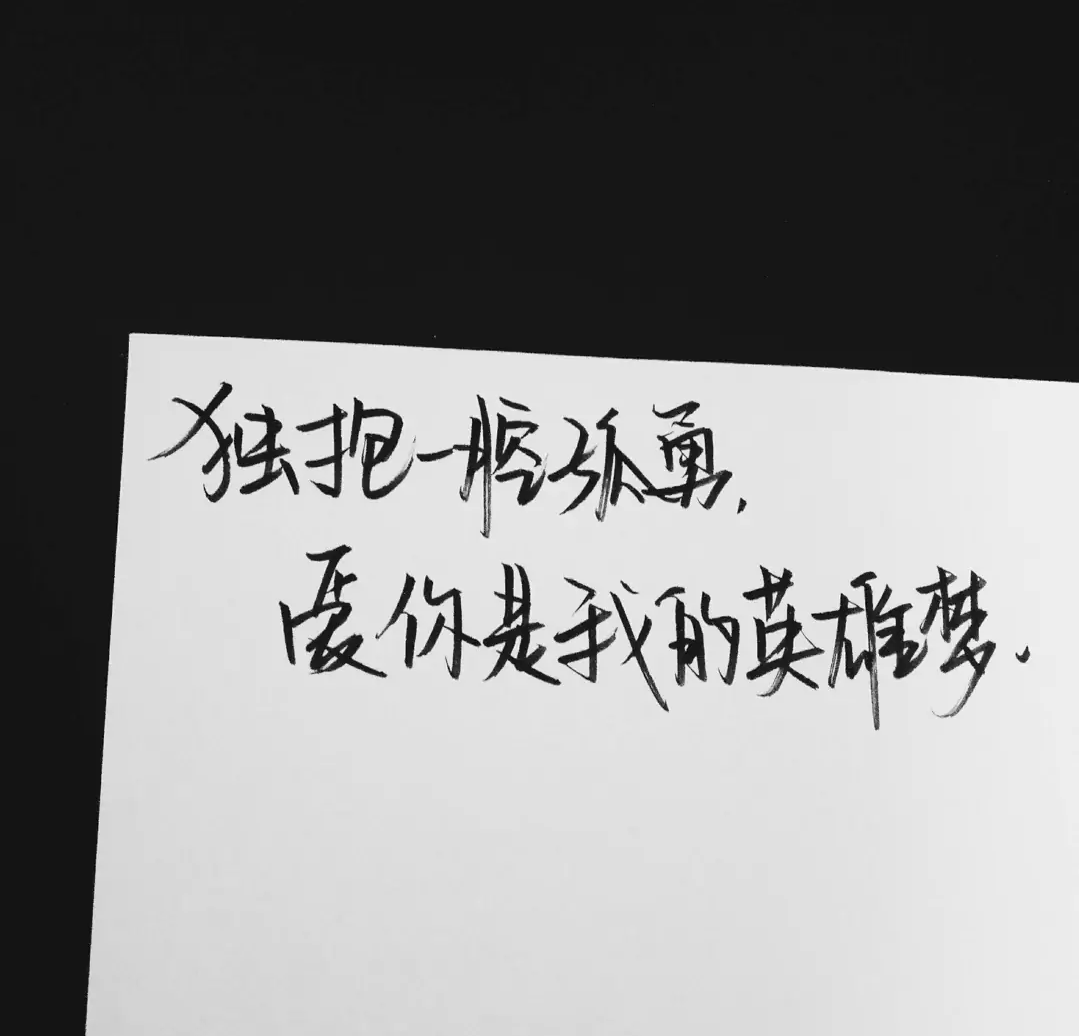 独抱一腔孤勇.
爱你是我的英雄梦.